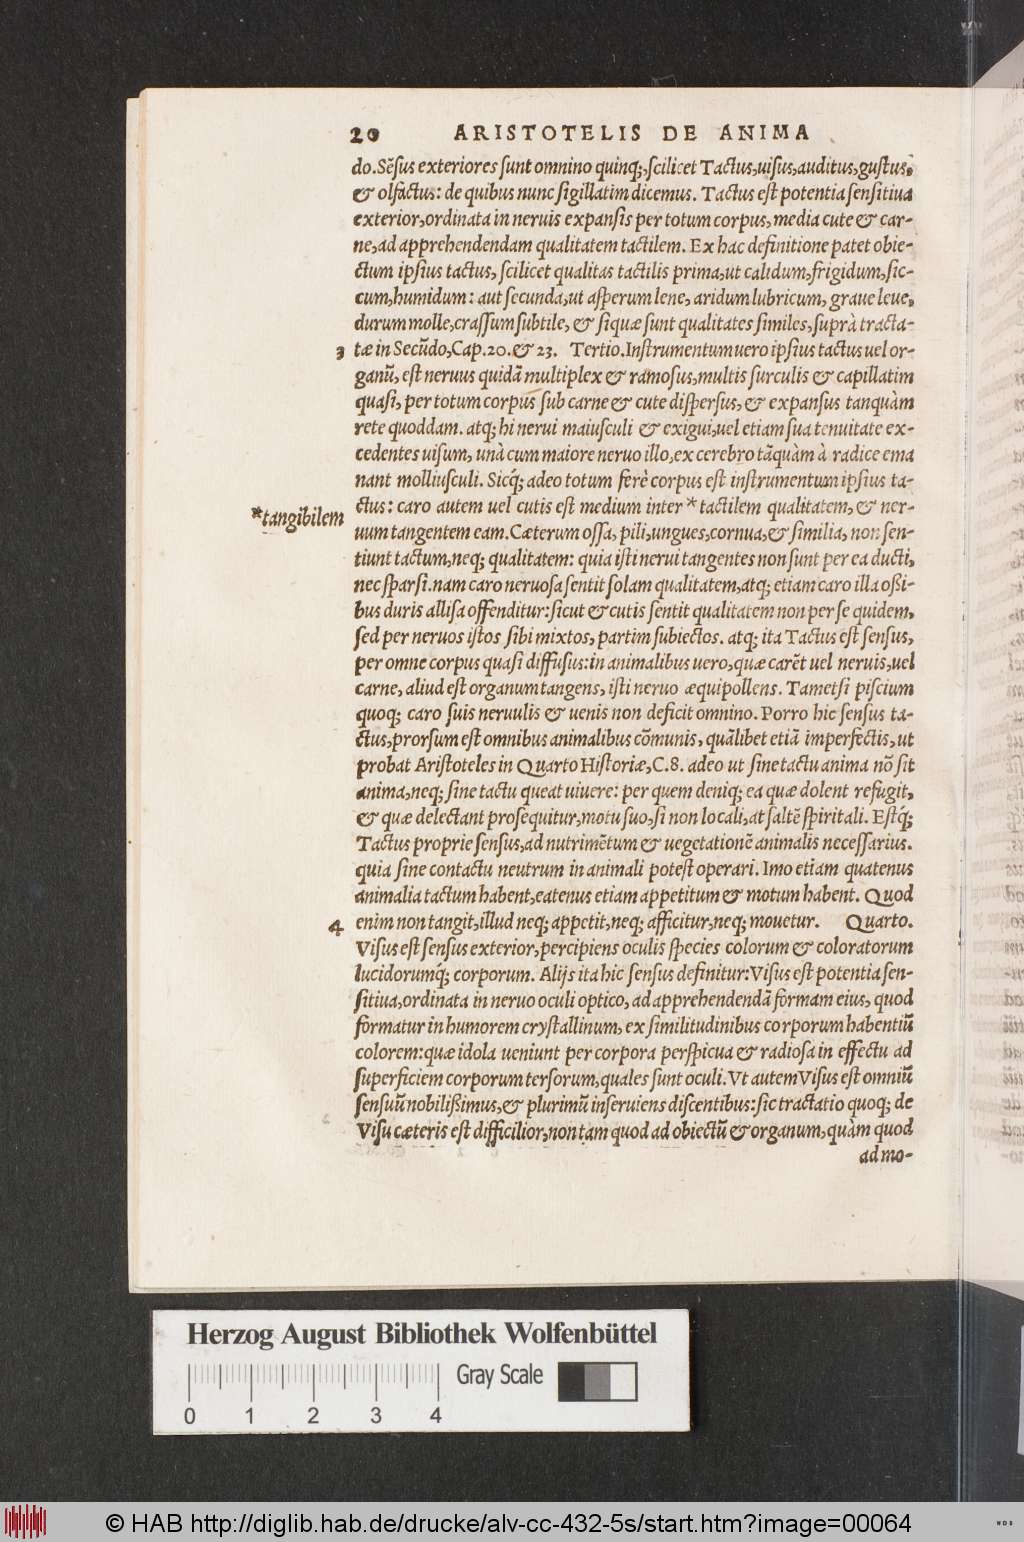 20 ARISTOTELIS DE ANIMA
do. Sẽsus exteriores sunt omnino quinq;, scilicet Tactus, uisus, auditus, gustus,
& olfactus: de quibus nunc sigillatim dicemus. Tactus est potentia sensitiua
exterior, ordinata in neruis expansis per totum corpus, media cute & car-
ne, ad apprehendendam qualitatem tactilem. Ex hac definitione patet obie-
ctum ipsius tactus, scilicet qualitas tactilis prima, ut calidum, frigidum, sic-
cum, humidum: aut secunda, ut asperum lene, aridum lubricum, graue leue,
durum molle, crassum subtile, & siquæ sunt qualitates similes, suprà tracta-
3 tæ in Secũdo, Cap. 20. & 23. Tertio. Instrumentum uero ipsius tactus uel or-
ganũ, est neruus quidã multiplex & ramosus, multis surculis & capillatim
quasi, per totum corpus sub carne & cute dispersus, & expansus tanquàm
rete quoddam. atq; hi nerui maiusculi & exigui, uel etiam sua tenuitate ex-
cedentes uisum, unà cum maiore neruo illo, ex cerebro tãquàm à radice ema
nant molliusculi. Sicq́; adeo totum ferè corpus est instrumentum ipsius ta-
ctus: caro autem uel cutis est medium inter * tactilem qualitatem, & ner-
*tangibilem
uum tangentem eam. Cæterum ossa, pili, ungues, cornua, & similia, non sen-
tiunt tactum, neq; qualitatem: quia isti nerui tangentes non sunt per ea ducti,
nec sparsi. nam caro neruosa sentit solam qualitatem, atq; etiam caro illa oßi-
bus duris allisa offenditur: sicut & cutis sentit qualitatem non per se quidem,
sed per neruos istos sibi mixtos, partim subiectos. atq; ita Tactus est sensus,
per omne corpus quasi diffusus: in animalibus uero, quæ carẽt uel neruis, uel
carne, aliud est organum tangens, isti neruo æquipollens. Tametsi piscium
quoq; caro suis neruulis & uenis non deficit omnino. Porro hic sensus ta-
ctus, prorsum est omnibus animalibus cõmunis, quãlibet etiã imperfectis, ut
probat Aristoteles in Quarto Historiæ, C. 8. adeo ut sine tactu anima nõ sit
anima, neq; sine tactu queat uiuere: per quem deniq; ea quæ dolent refugit,
& quæ delectant prosequitur, motu suo, si non locali, at saltẽ spiritali. Estq́;
Tactus proprie sensus, ad nutrimẽtum & uegetationẽ animalis necessarius.
quia sine contactu neutrum in animali potest operari. Imo etiam quatenus
animalia tactum habent, eatenus etiam appetitum & motum habent. Quod
4 enim non tangit, illud neq; appetit, neq; afficitur, neq; mouetur. Quarto.
Visus est sensus exterior, percipiens oculis species colorum & coloratorum
lucidorumq́; corporum. Alijs ita hic sensus definitur: Visus est potentia sen-
sitiua, ordinata in neruo oculi optico, ad apprehendendã formam eius, quod
formatur in humorem crystallinum, ex similitudinibus corporum habentiũ
colorem: quæ idola ueniunt per corpora perspicua & radiosa in effectu ad
superficiem corporum tersorum, quales sunt oculi. Vt autem Visus est omniũ
sensuũ nobilißimus, & plurimũ inseruiens discentibus: sic tractatio quoq; de
Visu cæteris est difficilior, non tam quod ad obiectũ & organum, quàm quod
ad mo-
Herzog August Bibliothek Wolfenbüttel
Gray Scale
0 1 2 3 4
© HAB http://diglib.hab.de/drucke/alv-cc-432-5s/start.htm?image=00064